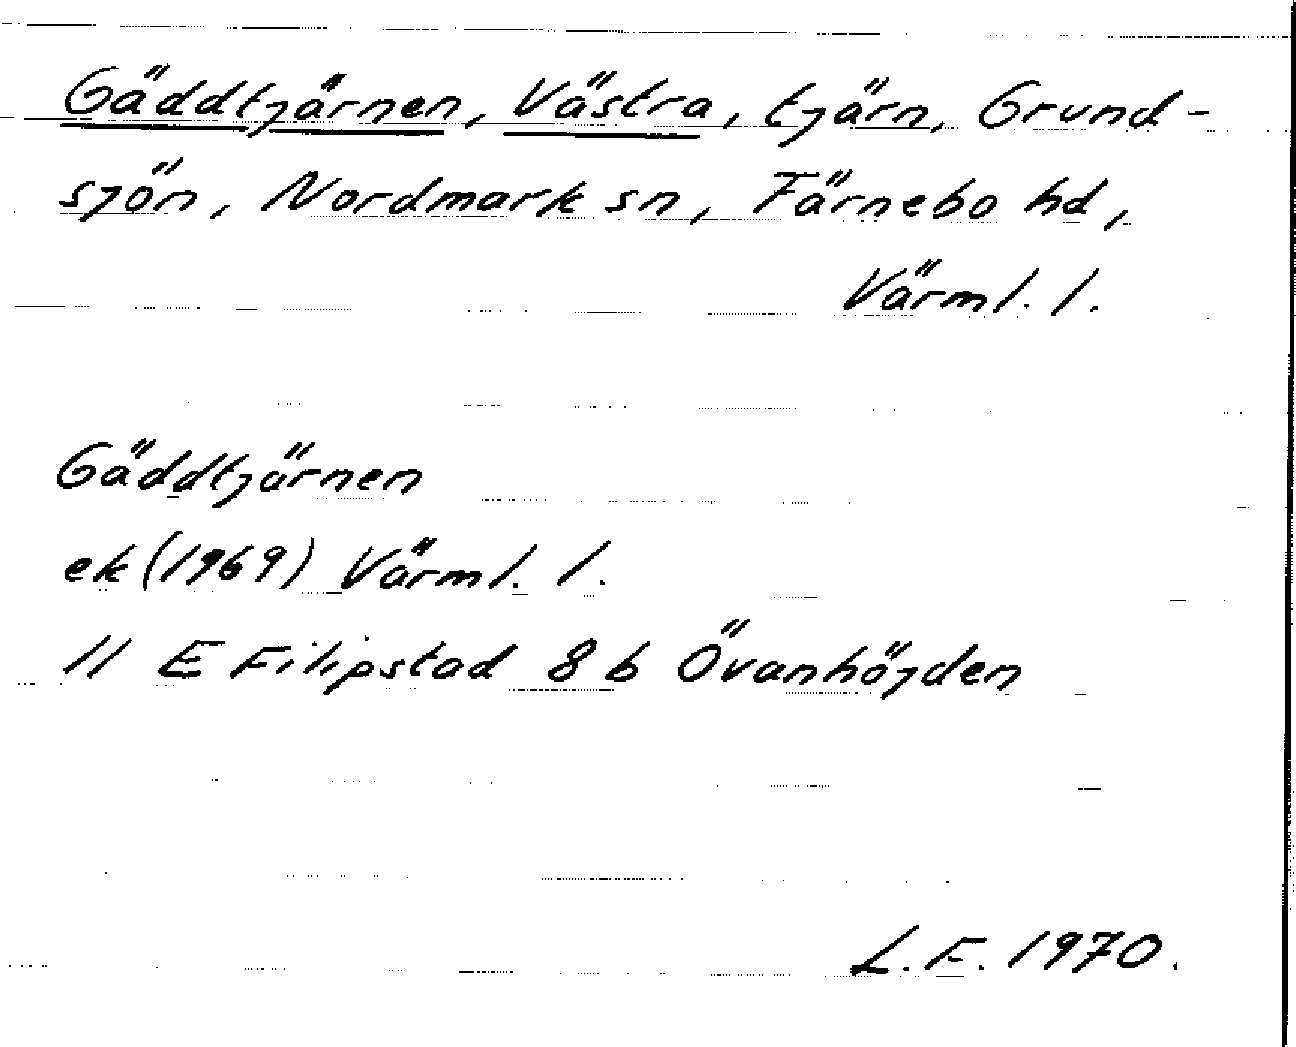 Gäddtjärnen, Västra, tjärn, Grund-
sjön, Nordmark sn, Färnebo hd,
Värml. l.
Gäddtjärnen
ek (1969) Värml. l.
11 E Filipstad 8 b Övanhöjden
L.E. 1970.